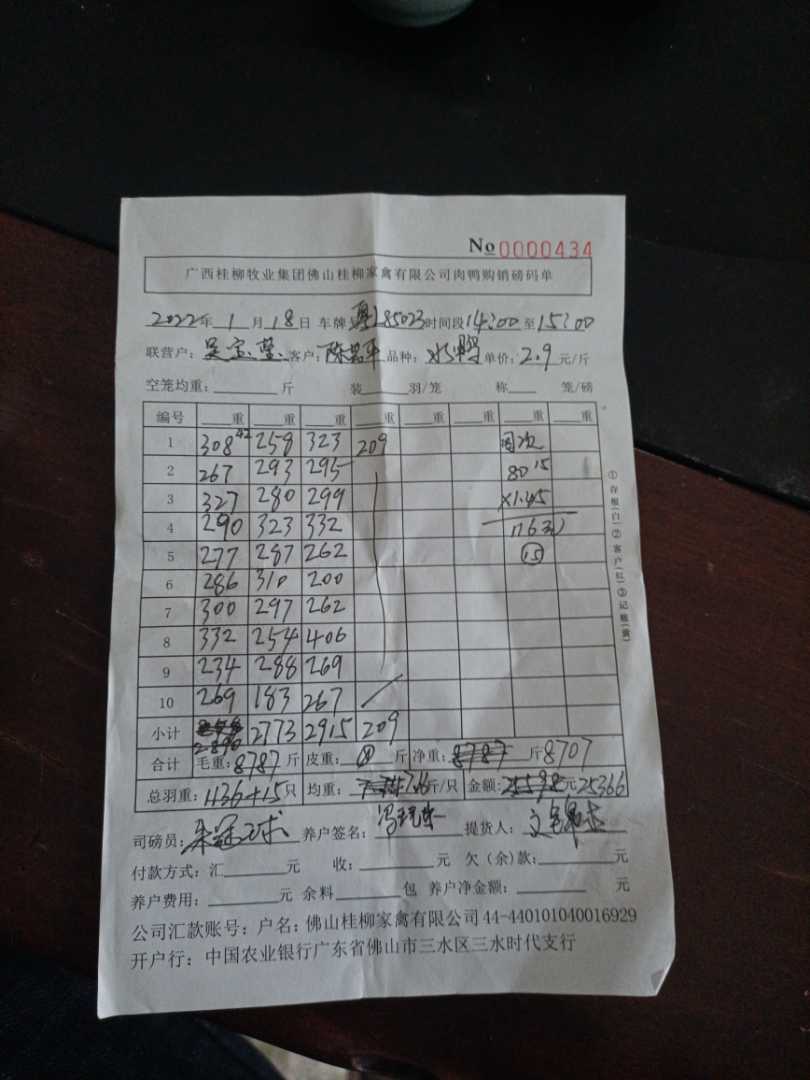 No 0000434
广西桂柳牧业集团佛山桂柳家禽有限公司肉鸭购销磅码单
2022年 1月 18日 车牌: 粤 85023 时间段 14:00 至 15:00
联营户: 吴宝莹 客户: 陈昌平 品种: 水鸭 单价: 2.9 元/斤
空笼均重: 斤 装 羽/笼 称 笼/磅
编号 重 重 重 重 重 重 重 重
1 308 42 258 323 209 周次
2 267 293 295 80 15
3 327 280 299 X1.45
4 290 323 332
5 277 287 262 15
6 286 310 200
7 300 297 262
8 332 254 406
9 234 288 269
10 269 183 267
小计 2890 2773 2915 209
合计 毛重: 8787 斤 皮重: 斤 净重: 8787 斤 8707
总羽重: 1136+15 只 均重: 7.66 斤/只 金额: 25598 元 25366
司磅员: 养户签名: 提货人:
付款方式: 汇 元 收: 元 欠(余)款: 元
养户费用: 元 余料 包 养户净金额: 元
公司汇款账号: 户名: 佛山桂柳家禽有限公司 44-440101040016929
开户行: 中国农业银行广东省佛山市三水区三水时代支行
①存根(白)②客户(红)③记账(黄)